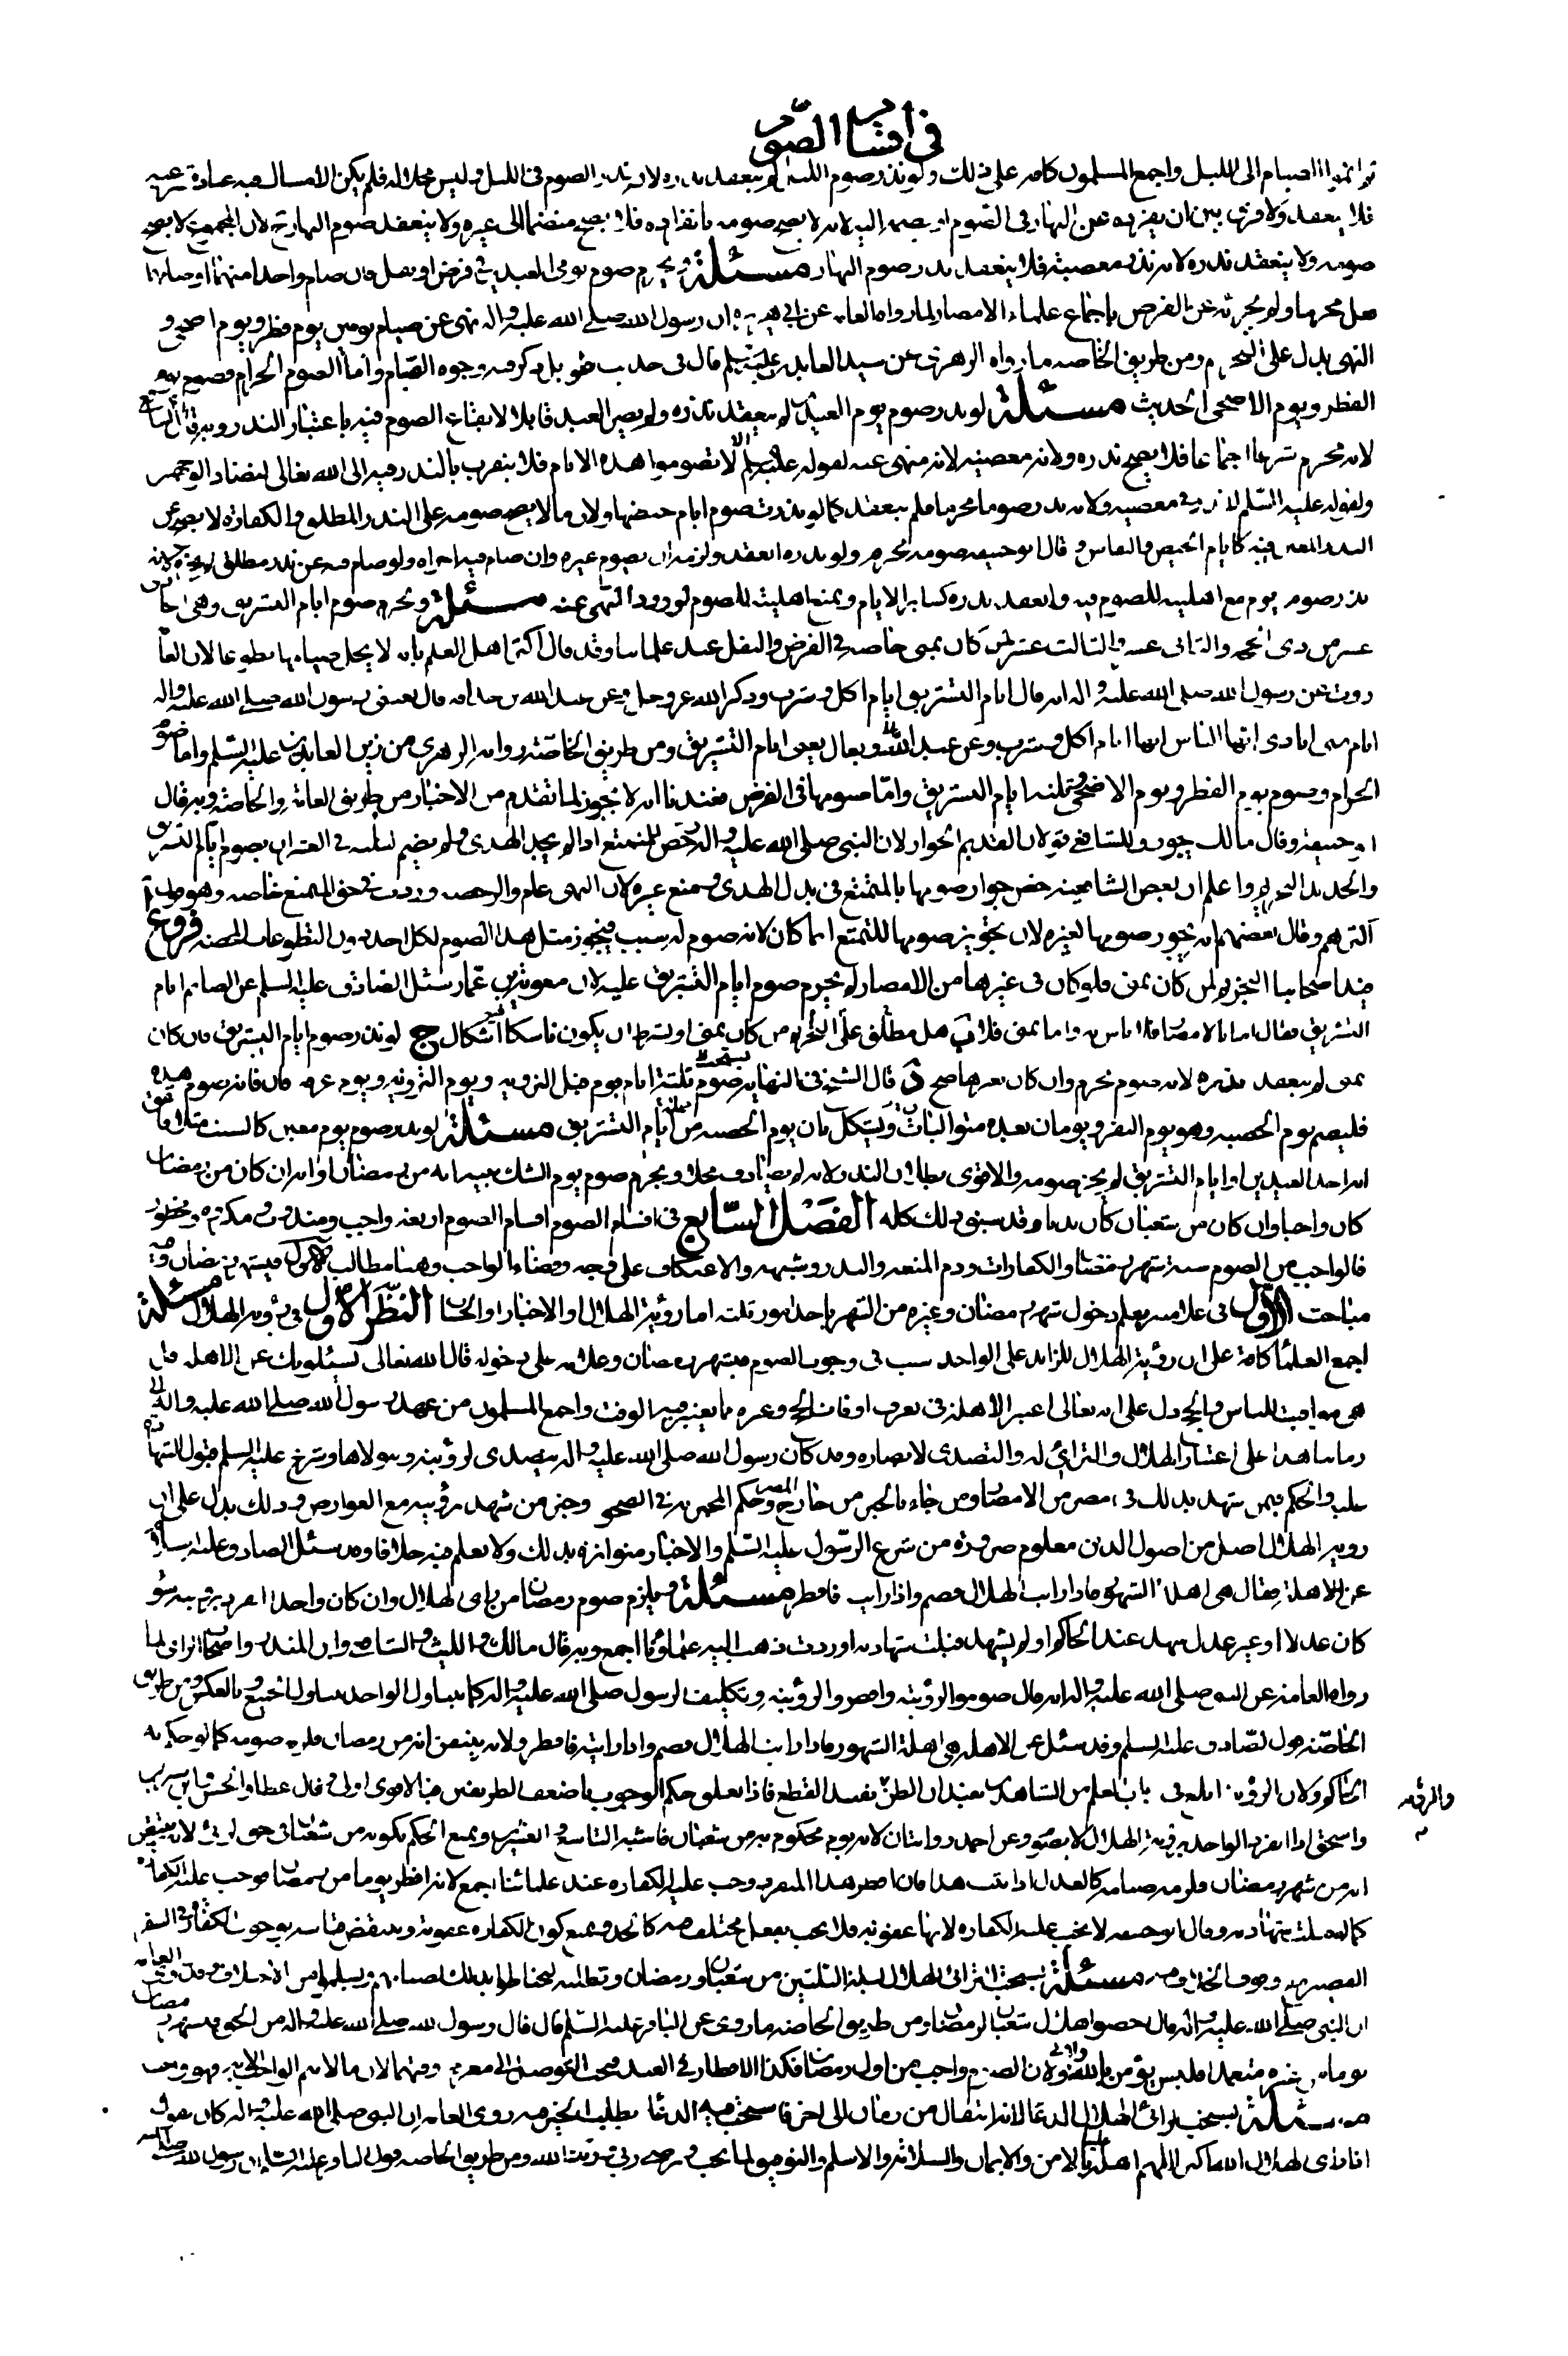 في اقسام الصوم
ثم اتموا الصيام الى الليل واجمع المسلمون كافة على ذلك ولو نذر صوم الليل لم ينعقد نذره لانه نذر الصوم في الليل وليس محلا له فلم يكن الامساك فيه عبادة شرعية
فلا ينعقد ولا فرق بين ان يفرده عن النهار في الصوم او يضمه اليه لانه لا يصح صومه بانفراده فلا يصح منضما الى غيره ولا ينعقد صوم النهار لان المجموع لا يصح
صومه ولا ينعقد نذره لانه نذر معصية فلا ينعقد نذر صوم النهار مسئلة ويحرم صوم يومي العيدين في فرض او نفل فان صام واحدا منهما او صامهما
فعل محرما ولم يجزئه عن الفرض باجماع علماء الامصار لما رواه العامة عن ابي هريرة ان رسول الله صلى الله عليه واله نهى عن صيام يومين يوم فطر ويوم اضحى و
النهي يدل على التحريم ومن طريق الخاصة ما رواه الزهري عن سيد العابدين عليه السلم قال في حديث طويل ذكر فيه وجوه الصيام واما الصوم الحرام فصوم يوم
الفطر ويوم الاضحى الحديث مسئلة لو نذر صوم يوم العيدين لم ينعقد نذره ولم يصر العيد قابلا لايقاع الصوم فيه باعتبار النذر وبه قال الشافعي
لانه محرم شرعا اجماعا فلا يصح نذره ولانه معصية لانه منهي عنه لقوله عليه السلم الا لا تصوموا هذه الايام فلا يتقرب بالنذر فيه الى الله تعالى لتضاد الوجهين
ولقوله عليه السلم لا نذر في معصية ولانه نذر صوما محرما فلم ينعقد كما لو نذرت صوم ايام حيضها ولان ما لا يصح صومه على النذر المطلق والكفارة لا يصح عن
النذر المعين فيه كايام الحيض والنفاس وقال ابو حنيفة صومه محرم ولو نذره انعقد ولزمه ان يصوم غيره وان صام فيه اجزاه ولو صام فيه عن نذر مطلق لم يجزه لانه
نذر صوم يوم مع اهليته للصوم فيه فانعقد نذره كساير الايام ويمنع اهليته للصوم لورود النهي عنه مسئلة ويحرم صوم ايام التشريق وهي
عشر من ذي الحجة والثاني عشر والثالث عشر لمن كان بمنى خاصة في الفرض والنفل عند علمائنا وقد قال اكثر اهل العلم بانه لا يحل صيامها تطوعا لان العامة
روت عن رسول الله صلى الله عليه واله انه قال ايام التشريق ايام اكل وشرب وذكر الله عز وجل وعن عبد الله بن حذافة قال بعثني رسول الله صلى الله عليه واله
ايام منى انادي ايها الناس انها ايام اكل وشرب وعن عبد الله وبعال يعني ايام التشريق ومن طريق الخاصة رواية الزهري من زين العابدين عليه السلم واما صوم
الحرام وصوم يوم الفطر ويوم الاضحى وثلثة ايام التشريق واما صومها في الفرض فعندنا انه لا يجوز لما تقدم من الاخبار من طريق العامة والخاصة وبه قال
ابو حنيفة وقال مالك يجوز وللشافعي قولان القديم الجواز لان النبي صلى الله عليه واله رخص للمتمتع اذا لم يجد الهدي ولم يصم الثلثة في العشر ان يصوم ايام التشريق
والجديد التحريم واعلم ان بعض الشافعية خص جواز صومها بالمتمتع في بدل الهدي ومنع غيره لان النهي عام والرخصة وردت في حق المتمتع خاصة وهو قول
اكثرهم وقال بعضهم انه يجوز صومها لغيره لان تجويز صومها للمتمتع انما كان لانه صوم له سبب فيجوز مثل هذا الصوم لكل احد دون التطوعات المحضة فروع
قيد اصحابنا التحريم لمن كان بمنى فلو كان في غيرها من الامصار لم يحرم صوم ايام التشريق عليه لان معوية بن عمار سئل الصادق عليه السلم عن الصائم ايام
التشريق فقال اما بالامصار فلا باس به واما بمنى فلا ب هل مطلق على التحريم من كان بمنى او يشترط ان يكون ناسكا اشكال ج لو نذر صوم ايام التشريق فان كان
بمنى لم ينعقد نذره لانه صوم محرم وان كان بغيرها صح د قال الشيخ في النهاية صوم ثلثة ايام يوم قبل التروية ويوم التروية ويوم عرفة فان فاته صوم هذه
فليصم يوم الحصبة وهو يوم النفر ويومان بعده متواليات ويشكل بان يوم الحصبة من ايام التشريق مسئلة لو نذر صوم يوم معين كالسبت مثلا فاتفق
انه احد العيدين او ايام التشريق لم يجز صومه والاقوى بطلان النذر لانه لم يصادف محلا ويحرم صوم يوم الشك بنية انه من رمضان اوانه ان كان من رمضان
كان واجبا وان كان من شعبان كان ندبا وقد سبق ذلك كله الفصل السابع في اقسام الصوم اقسام الصوم اربعة واجب ومندوب ومكروه ومحظور
فالواجب من الصوم ستة شهر رمضان والكفارات ودم المتعة والنذر وشبهه والاعتكاف على وجه وقضاء الواجب وهنا مطالب الاول في شهر رمضان وفيه
مباحث الاول في علامته يعلم دخول شهر رمضان وغيره من الشهر باحد امور ثلثة اما رؤية الهلال او الاخبار او الحساب النظر الاول في رؤية الهلال مسئلة
اجمع العلماء كافة على ان رؤية الهلال للزايد على الواحد سبب في وجوب الصوم في شهر رمضان وعلامة على دخوله قال الله تعالى يسئلونك عن الاهلة قل
هي مواقيت للناس والحج دل على انه تعالى اعتبر الاهلة في تعرف اوقات الحج وغيره مما يعتبر فيه الوقت واجمع المسلمون من عهد رسول الله صلى الله عليه واله الى
زماننا هذا على اعتبار الهلال والترائي له والتصدي لابصاره وقد كان رسول الله صلى الله عليه واله يتصدى لرؤيته ويتولاها وشرع عليه السلم قبول الشهادة
عليه والحكم فيمن شهد بذلك في مصر من الامصار ومن جاء بالخبر من خارج المصر وحكم المخبر به في الصحو وخبر من شهد برؤيته مع العوارض وذلك يدل على ان
رؤية الهلال اصل من اصول الدين معلوم ضرورة من شرع الرسول عليه السلم والاخبار متواترة بذلك ولا نعلم فيه خلافا وقد سئل الصادق عليه السلم
عن الاهلة فقال هي اهلة الشهور فاذا رايت الهلال فصم واذا رايته فافطر مسئلة ويلزم صوم رمضان من راى الهلال وان كان واحدا انفرد برؤيته سواء
كان عدلا او غير عدل شهد عند الحاكم او لم يشهد قبلت شهادته او ردت ذهب اليه علماؤنا اجمع وبه قال مالك والليث والشافعي وابن المنذر واصحاب الراي لما
رواه العامة عن النبي صلى الله عليه واله انه قال صوموا لرؤيته وافطروا لرؤيته وتكليف الرسول صلى الله عليه واله كما يتناول الواحد يتناول الجميع وبالعكس ومن طريق
الخاصة قول الصادق عليه السلم وقد سئل عن الاهلة هي اهلة الشهور فاذا رايت الهلال فصم واذا رايته فافطر ولانه يتيقن انه من رمضان فلزمه صومه كما لو حكم به
الحاكم ولان الرؤية ابلغ في باب العلم من الشاهدين يفيدان الظن والرؤية تفيد القطع فاذا تعلق حكم الوجوب باضعف الطريقين فبالاقوى اولى وقال عطا والحسن وابن سيرين
واسحق اذا انفرد الواحد برؤية الهلال لا يصوم وعن احمد روايتان لانه يوم محكوم به من شعبان فاشبه التاسع والعشرين ويمنع الحكم بكونه من شعبان في حق الرائي لانه يتيقن
انه من شهر رمضان فلزمه صيامه كالعدل اذا ثبت هذا فان افطر هذا المنفرد وجب عليه الكفارة عند علمائنا اجمع لانه افطر يوما من رمضان فوجب عليه الكفارة
كما لو قبلت شهادته وقال ابو حنيفة لا يجب عليه الكفارة لانها عقوبة فلا يجب بفعل مختلف فيه كالحد ويمنع كون الكفارة عقوبة وينتقض قياسه بوجوب الكفارة في السفر
القصير مع وقوع الخلاف فيه مسئلة يستحب الترائي للهلال ليلة الثلثين من شعبان ورمضان وتطلبه ليحتاطوا بذلك لصيامهم ويسلموا من الاختلاف وقد روى العامة
ان النبي صلى الله عليه واله قال احصوا هلال شعبان لرمضان ومن طريق الخاصة ما روي عن الباقر عليه السلم قال قال رسول الله صلى الله عليه واله من الحق في شهر رمضان
يوما من غيره متعمدا فليس يؤمن بالله ولا بي ولان الصوم واجب من اول رمضان وكذا الافطار في العيد فيجب التوصل الى معرفتهما لان ما لا يتم الواجب الا به فهو واجب
مسئلة يستحب لرائي الهلال الدعا لانه انتقال من زمان الى اخر فاستحب فيه الدعا بطلب الخير فيه روى العامة ان النبي صلى الله عليه واله كان يقول
اذا راى الهلال الله اكبر اللهم اهله علينا بالامن والايمان والسلامة والاسلم والتوفيق لما تحب وترضى ربي وربك الله ومن طريق الخاصة قول الباقر عليه السلم كان رسول الله صلى الله